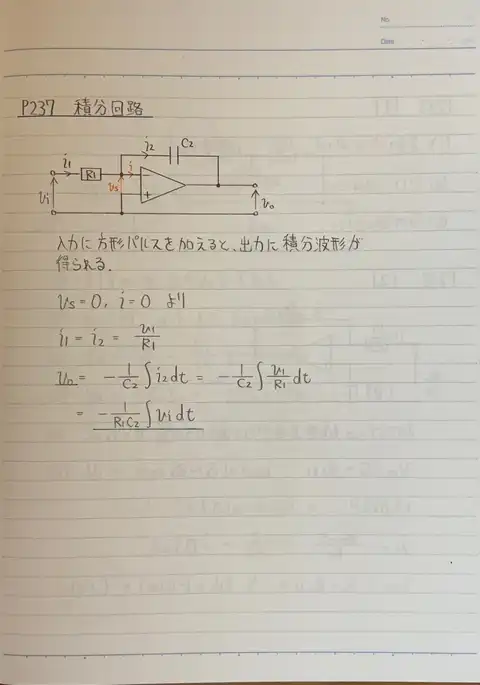 No.
Date
P237 積分回路
i1 R1 vs i i2 C2
vi - + vo
入力に方形パルスを加えると、出力に積分波形が
得られる.
vs = 0, i = 0 より
i1 = i2 = vi/R1
vo = -1/C2 ∫ i2 dt = -1/C2 ∫ vi/R1 dt
= -1/R1C2 ∫ vi dt